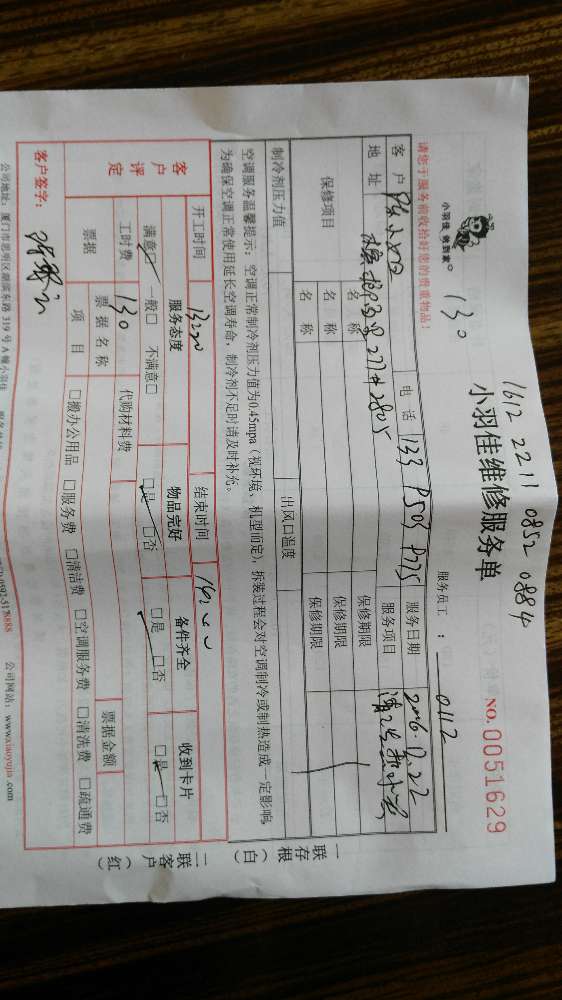 1612 22 11 0852 0884
小羽佳 做到家
130
小羽佳维修服务单
NO. 0051629
请您于服务前收拾好您的贵重物品！
服务员工：0112
客 户
电 话 133
服务日期
地 址 277# 2805
服务项目
保修项目 名 称 保修期限
名 称 保修期限
名 称 保修期限
制冷剂压力值 出风口温度
空调服务温馨提示：空调正常制冷剂压力值为0.45mpa（视环境、机型而定），拆装过程会对空调制冷或制热造成一定影响，
为确保空调正常使用延长空调寿命，制冷剂不足时请及时补充。
一存根（白）
二客户联（红）
开工时间 结束时间
客户评定 服务态度 物品完好 备件齐全 收到卡片
满意□ 一般□ 不满意□ □是 □否 □是 □否 □是 □否
工时费 130 代购材料费
票据 票据名称 票据金额
项 目 □搬办公用品 □服务费 □清洁费 □空调服务费 □清洗费 □疏通费
客户签字：
公司地址：厦门市思明区湖滨东路 319 号 A
公司网站：www.xiaoyujia.com